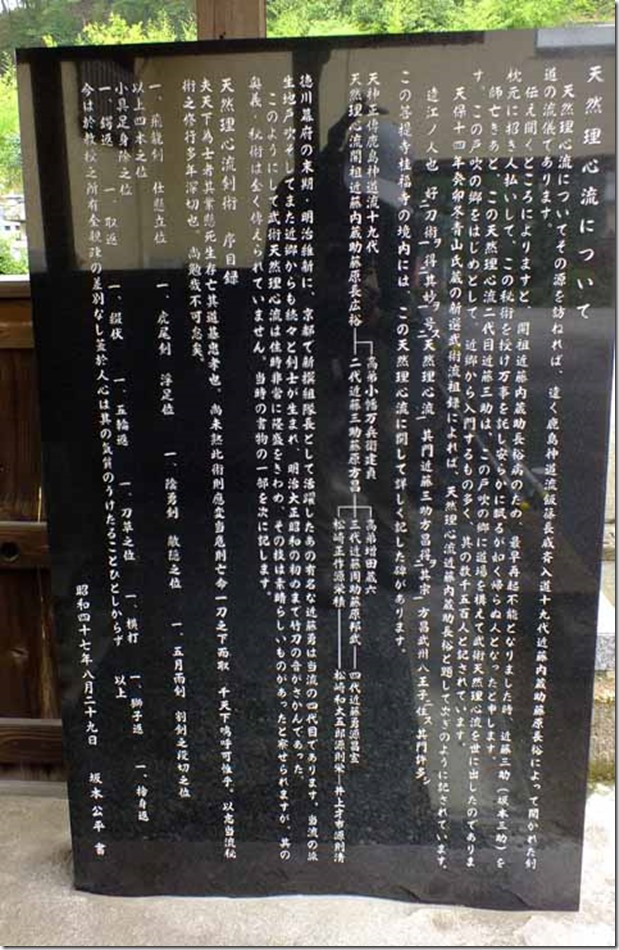 天然理心流について
天然理心流についてその源を訪ねれば、遠く鹿島神道流飯篠長威斉入道十九代近藤内蔵助藤原長裕によって開かれた剣
道の流儀であります。
伝え聞くところによりますと、開祖近藤内蔵助長裕病のため、最早再起不能となりました時、近藤三助（坂本三助）を
枕元に招き人払いして、この秘術を授け万事を託し安らかに眠るが如く帰らぬ人となったと申します。
師亡きあと、この天然理心流二代目近藤三助は、この戸吹の郷に道場を構えて武術天然理心流を世に出したのでありま
す。この戸吹の郷をはじめとして、近郷から入門するもの多く、其の数千五百人と記されています。
天保十四年癸卯冬青山氏蔵の新選武術流祖録によれば、天然理心流近藤内蔵助長裕と題して次ぎのように記されています。
遠江ノ人也 好刀術得其妙号天然理心流 其門近藤三助方昌得其宗 方昌武州八王子住ス其門許多
この菩提寺桂福寺の境内には、この天然理心流に関して詳しく記した碑があります。
天神正傳鹿島神道流十九代
天然理心流開祖近藤内蔵助藤原長裕
高弟小幡万兵衛定貞
二代近藤三助藤原方昌
高弟増田蔵六
三代近藤周助藤原邦武
四代近藤勇源昌宜
松崎正作源栄積
松崎和大五郎源則栄
井上才市源則清
徳川幕府の末期・明治維新に、京都で新撰組隊長として活躍したあの有名な近藤勇は当流の四代目であります。当流の誕
生地戸吹そしてまた近郷からも続々と剣士が生まれ、明治大正昭和の初めまで竹刀の音がさかんであった。
このようにして武術天然理心流は往時非常に隆盛をきわめ、その技は素晴らしいものがあったと察せられますが、其の
奥義・秘術は全く傳えられていません。当時の書物の一部を次に記します。
天然理心流剣術 序目録
夫天下為士者其業懸死生存亡其道甚忠孝也 尚未熟此術則應変当危則亡命一刀之下而取 千天下嗚呼可怪乎。以志当流秘
術之修行多年深切也。尚勉哉不可怠矣。
一、飛龍剣 仕懸立位 一、虎尾剣 浮足位 一、陰勇剣 敵隠之位 一、五月雨剣 割剣之段切之位
以上四本之位
小具足身除之位
一、鐺返 一、取返 一、錣伏 一、五輪返 一、刀草之位 一、横打 一、獅子返 一、捨身返
以上
今は於敎授之所有金銀珠の差別なし並於人心は其の気質のうけたることひとしからず
昭和四十七年八月二十九日 坂本公平 書